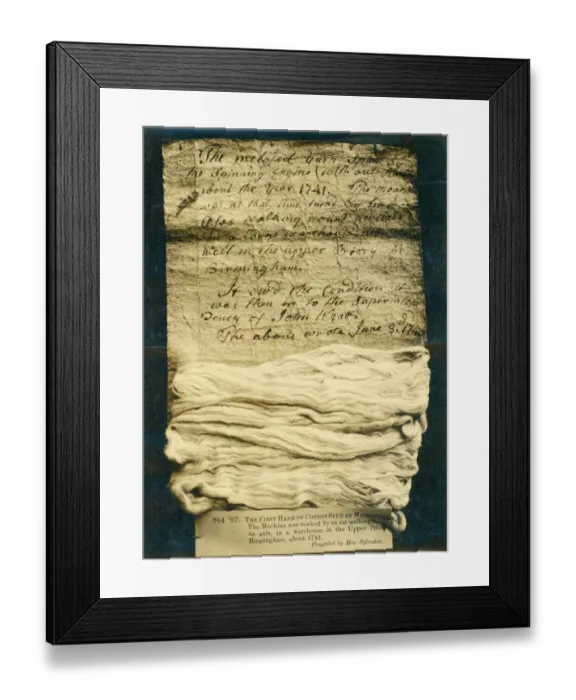 The inclosed yarn spun
the Spinning Engine (without
about the Year 1741. The move
was at that time turn'd by
Asses walking round
in a large warehouse
Well in the upper Priory in
Birmingham.
It ow'd the Condition it
was then in to the Superinten
Dency of John Wyat.
The above wrote June 3. 17
964 '87. THE FIRST HANK OF COTTON SPUN BY
The Machine was worked by an ass walking
its axis, in a warehouse in the Upper
Birmingham, about 1741.
Presented by Mrs. Sylvester.